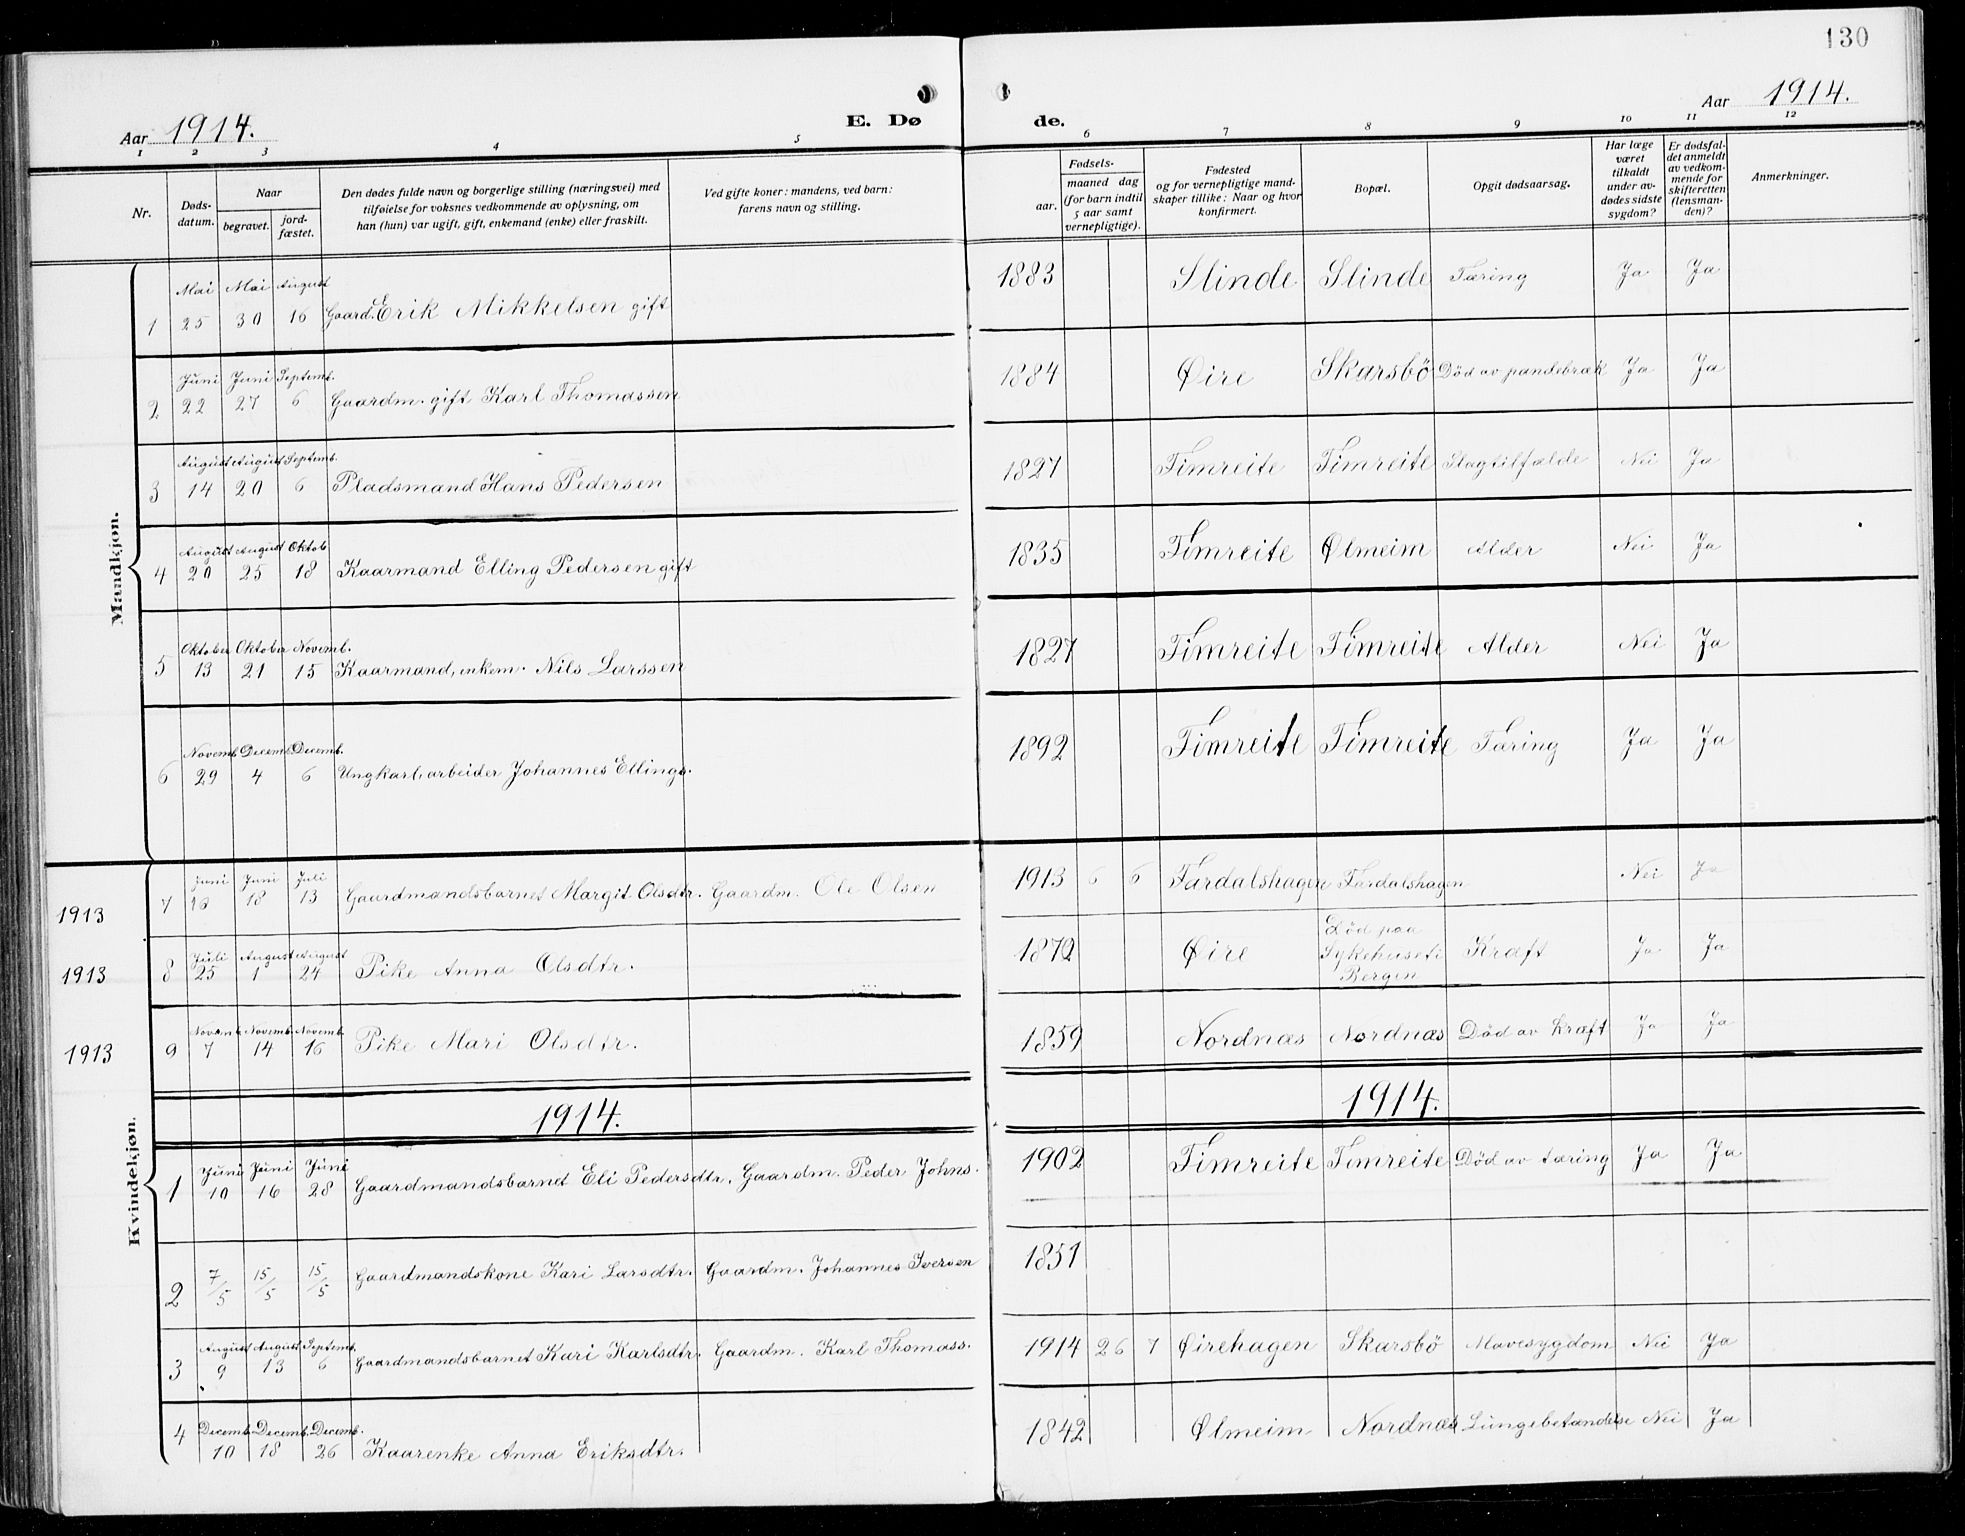 130
Aar 1914.
E. Døde.
Aar 1914.
1 2 3 4 5 6 7 8 9 10 11 12
Nr.
Døds-datum.
Naar
begravet.
jord-fæstet.
Den dødes fulde navn og borgerlige stilling (næringsvei) med
tilføielse for voksnes vedkommende av oplysning, om
han (hun) var ugift, gift, enkemand (enke) eller fraskilt.
Ved gifte koner: mandens, ved barn:
farens navn og stilling.
Fødsels-
aar.
maaned dag
(for barn indtil
5 aar samt
vernepligtige).
Fødested
og for vernepligtige mand-
skaper tillike: Naar og hvor
konfirmert.
Bopæl.
Opgit dødsaarsag.
Har læge
været
tilkaldt
under av-
dødes sidste
sygdom?
Er dødsfal-
det anmeldt
av vedkom-
mende for
skifteretten
(lensman-
den)?
Anmerkninger.
Mandkjøn.
1 Mai 25 Mai 30 August 16 Gaard. Erik Mikkelsen gift 1883 Slinde Slinde Tæring Ja Ja
2 Juni 22 Juni 27 Septemb. 6 Gaardm. gift Karl Thomassen 1884 Øire Skarsbö Död av pandebræk Ja Ja
3 August 14 August 20 Septemb. 6 Pladsmand Hans Pedersen 1827 Timreite Timreite Slagtilfælde Nei Ja
4 August 20 August 25 Oktob 18 Kaarmand Elling Pedersen gift 1835 Timreite Ølmeim Alder Nei Ja
5 Oktober 13 Oktober 21 Novemb. 15 Kaarmand, enkem. Nils Larssen 1827 Timreite Timreite Alder Nei Ja
6 Novemb. 29 Decemb. 4 Decemb. 6 Ungkarl, arbeider Johannes Ellings. 1892 Timreite Timreite Tæring Ja Ja
1913 7 Juni 16 Juni 18 Juli 13 Gaardmandsbarnet Margit Olsdtr. Gaardm. Ole Olsen 1913 6 6 Fardalshagen Fardalshagen Nei Ja
1913 8 Juli 25 August 1 August 24 Pike Anna Olsdtr. 1872 Øire Död paa Sykehuset i Bergen Kræft Ja Ja
1913 9 Novemb. 7 Novemb. 14 Novemb. 16 Pike Mari Olsdtr. 1859 Nordnæs Nordnæs Död av kræft Ja Ja
1914. 1914.
Kvindekjøn.
1 Juni 10 Juni 16 Juni 28 Gaardmandsbarnet Eli Pedersdtr. Gaardm. Peder Johns. 1902 Timreite Timreite Död av tæring Ja Ja
2 7/5 15/5 15/5 Gaardmandskone Kari Larsdtr. Gaardm. Johannes Iversen 1851
3 August 9 August 13 Septemb. 6 Gaardmandsbarnet Kari Karlsdtr. Gaardm. Karl Thomass. 1914 26 7 Øirehagen Skarsbö Mavesygdom Nei Ja
4 Decemb. 10 Decemb. 18 Decemb. 26 Kaarenke Anna Eriksdtr. 1842 Ølmeim Nordnæs Lungebetændelse Nei Ja